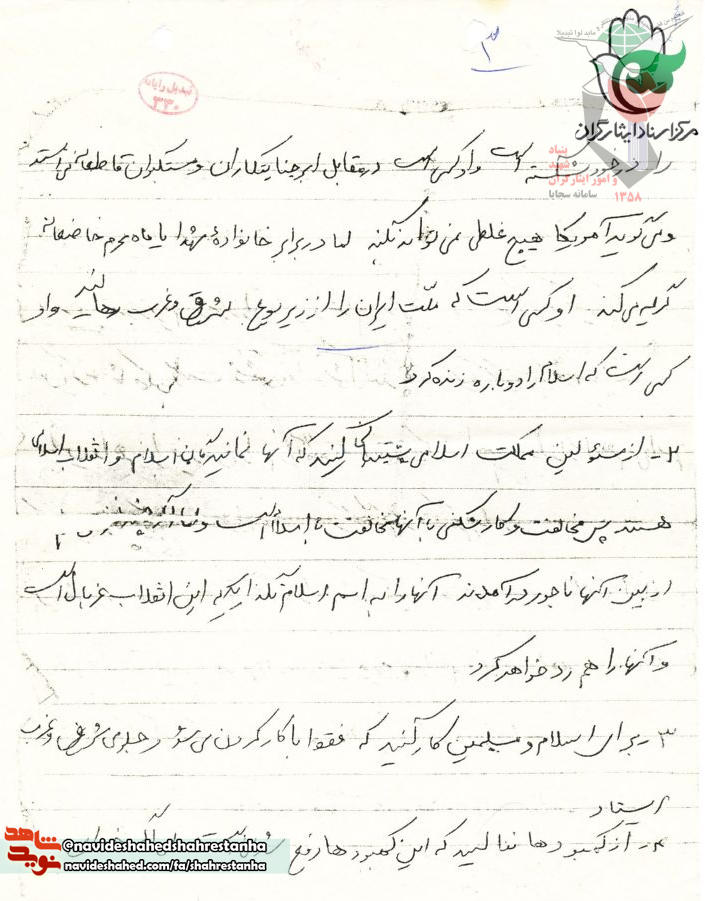 صد
۳
مرکز اسناد ایثارگران
بنیاد شهید و امور ایثارگران
سامانه سجایا
۱۳۵۸
تبدیل رایانه
۳۳۰
را در خود است و او کسی است در مقابل ابرجنایتکاران و ستمگران قاطعانه می ایستد
و می گوید آمریکا هیچ غلطی نمی تواند بکند اما در برابر خانوادۀ شهدا یا ماه محرم خاضعانه
گریه می کند. او کسی است که ملت ایران را از زیر یوغ شرق و غرب رهانید و او
کسی است که اسلام را دوباره زنده کرد
۲- از مسئولین مملکت اسلامی پشتیبانی کنید که آنها نمایندگان اسلام و انقلاب اسلامی
هستند پس مخالفت و کارشکنی با آنها مخالفت با اسلام است و
از بین آنها ناجور درآمدند آنها را به اسم اسلام نگذارید که این انقلاب غربال است
و آنها را هم رد خواهد کرد
۳- برای اسلام و مسلمین کار کنید که فقط با کار کردن می شود جلوی شرق و غرب
ایستاد
۴- از کمبودها ننالید که این کمبودها رفع
شاهد نوید
@navideshahedshahrestanha
navideshahed.com/fa/shahrestanha